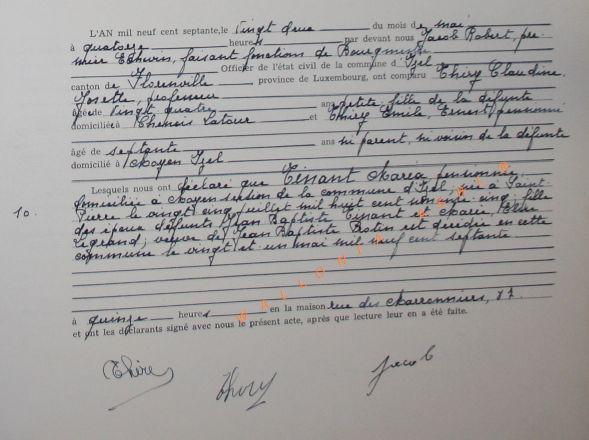 L'AN mil neuf cent septante, le vingt deux du mois de mai
à quatorze heures par devant nous Jacob Robert, pre-
mier Echevin, faisant fonctions de Bourgmestre
Officier de l'état civil de la commune d'Izel
canton de Florenville province de Luxembourg, ont comparu Thiry Claudine,
Josette, professeur
âgée de vingt quatre ans petite fille de la défunte
domiciliée à Chenois Latour et Thiry Emile, Ernest, pensionné
âgé de septante ans ni parent, ni voisin de la défunte
domicilié à Moyen Izel
Lesquels nous ont déclaré que Tinant Maria pensionnée
domiciliée à Moyen section de la commune d'Izel, née à Saint-
10. Pierre le vingt cinq juillet mil huit cent nonante cinq, fille
des époux défunts Jean Baptiste Tinant et Marie,
Legrand, veuve de Jean Baptiste est décédée en cette
commune le vingt et un mai mil neuf cent septante
à quinze heures en la maison rue des Marronniers, 
et ont les déclarants signé avec nous le présent acte, après que lecture leur en a été faite.
Thiry Thiry Jacob